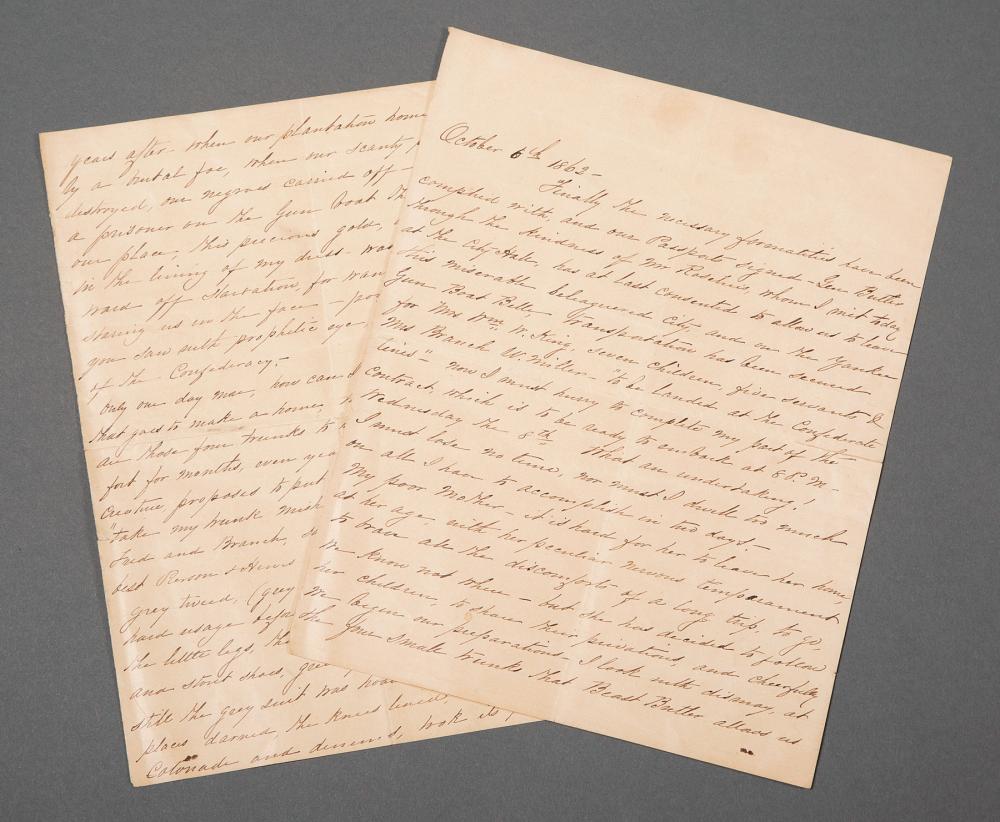 years after when our plantation home
by a brutal foe, when our scanty
destroyed, our negroes carried off -
a prisoner on the Gun boat
our place, this precious gold,
in the lining of my dress - was
ward off starvation, for
staring us in the face -
you saw with prophetic eye
of the Confederacy -
Only one day more, how can I
that goes to make a home,
are those four trunks to
fort for months, even
Creature proposes to put
"take my trunk
Fred and Branch, so
best Pierson & Hews
grey tweed, (grey
hard usage before the
the little legs, the
and stout shoes,
still the grey suit was
places darned, the knees lined,
Cotonade and denims, took its
October 6th 1862 -
Finally the necessary formalities have been
complied with, and our Passports signed - Gen Butler
through the kindness of Mr Roselius, whom I met today
at the City Hall, has at last consented to allow us to leave
this miserable beleaguered city, and on the Yankee
Gun Boat Belle, transportation has been secured
for Mrs Wm. W. King, seven children, five servants &
Mrs Branch W. Miller - "to be landed at the Confederate
lines" - now I must hurry to complete my part of the
contract, which is to be ready to embark at 8 P. M -
Wednesday the 8th - What an undertaking.
I must lose no time, nor must I dwell too much
on all I have to accomplish in two days. -
My poor mother - it is hard for her to leave her home,
at her age, with her peculiar nervous temperament
to brave all the discomforts of a long trip, to go,
we know not where - but she has decided to follow
her children, to share their privations, and cheerfully
we begin our preparations. I look with dismay, at
the four small trunks that Beast Butler allows us